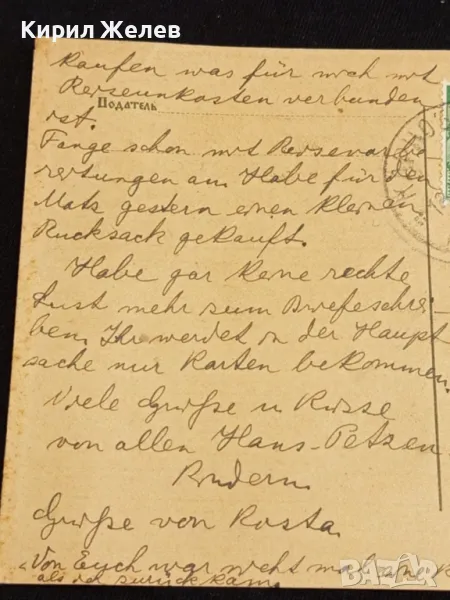 Кирил Желев
kaufen was für mich mit
Reiseunkosten verbunden
Податель
ist.
Fange schon mit Reisevorbe
reitungen an. Habe für den
Matz gestern einen kleinen
Rucksack gekauft.
Habe gar keine rechte
Lust mehr zum Briefeschrei-
ben. Ihr werdet in der Haupt-
sache nur Karten bekommen.
Viele Grüße u Küsse
von allen Hans-Petzen
Kindern.
Grüße von Kosta.
Von Euch war nicht mal eine K
als ich zurückkam.
BAZAR